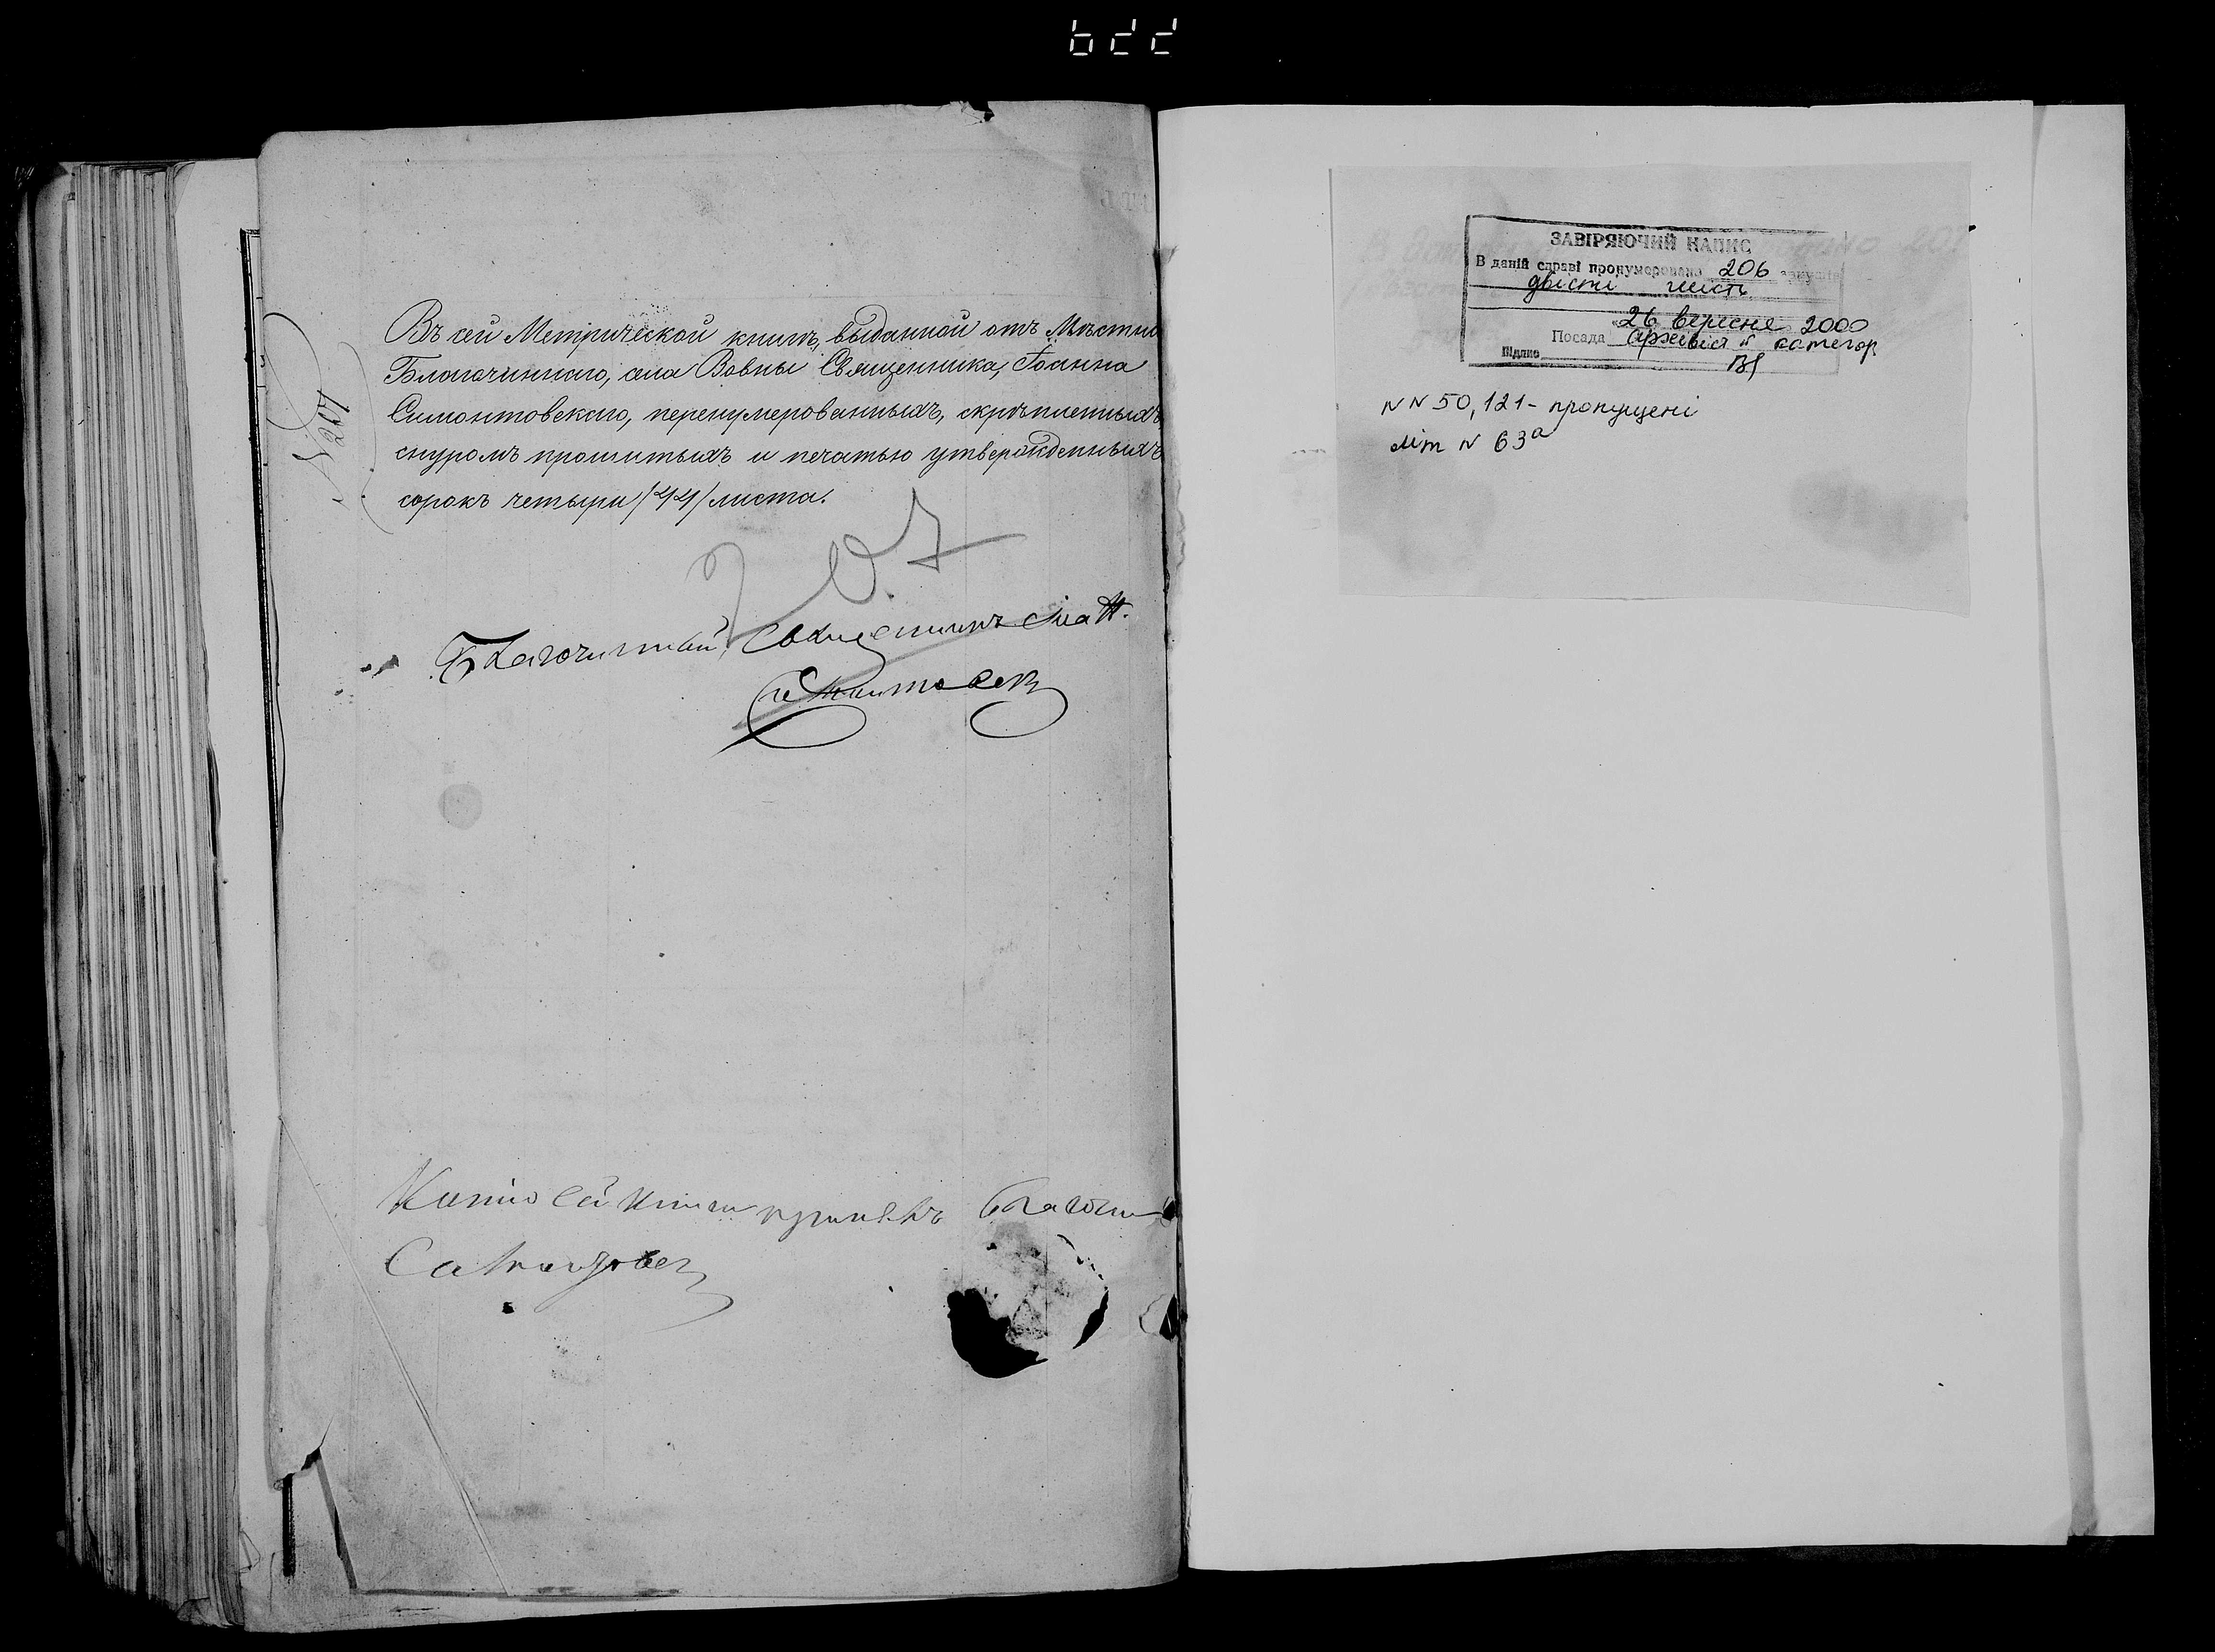 № 254
Въ сей Метрической книгѣ, выданной отъ Мѣстна
Благочиннаго, села Вовны Священника, Іоанна
Симонтовскаго, перенумерованныхъ, скрѣпленныхъ
снуромъ прошитыхъ и печатью утвержденныхъ
сорокъ четыри /44/ листа.
Благочинный, Священникъ
Копію сей книги
ЗАВІРЯЮЧИЙ НАПИС
В даній справі пронумеровано 206 аркушів
двісті шість
26 вересня 2000
Посада архівіст II категор
Підпис
NN 50, 121 - пропущені
літ N 63а